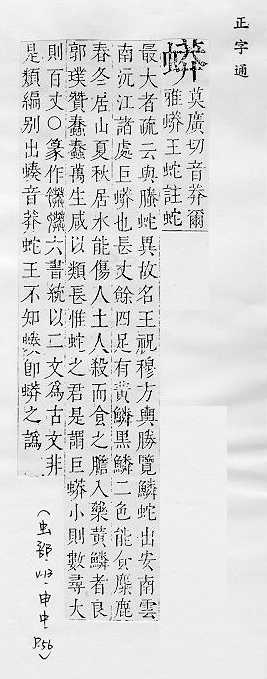 正字通
蟒
莫廣切音莽爾
雅蟒王蛇註蛇
最大者疏云與螣蛇異故名王祝穆方輿勝覽鱗蛇出安南雲
南沅江諸處巨蟒也長丈餘四足有黃鱗黑鱗二色能食麋鹿
春冬居山夏秋居水能傷人土人殺而食之膽入藥黃鱗者良
郭璞贊蠢蠢萬生咸以類長惟蛇之君是謂巨蟒小則數尋大
則百丈○篆作 六書統以二文為古文非
是類編别出 音莽蛇王不知 即蟒之譌
(虫部,v.13,申中,P.56)